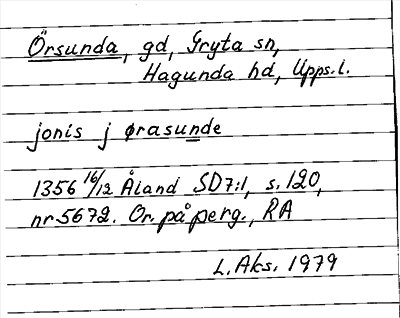 Örsunda, gd, Gryta sn,
Hagunda hd, Upps.l.
jonis j ørasunde
1356 16/12 Åland SD7:1, s.120,
nr 5672. Or. på perg., RA
L. Aks. 1979